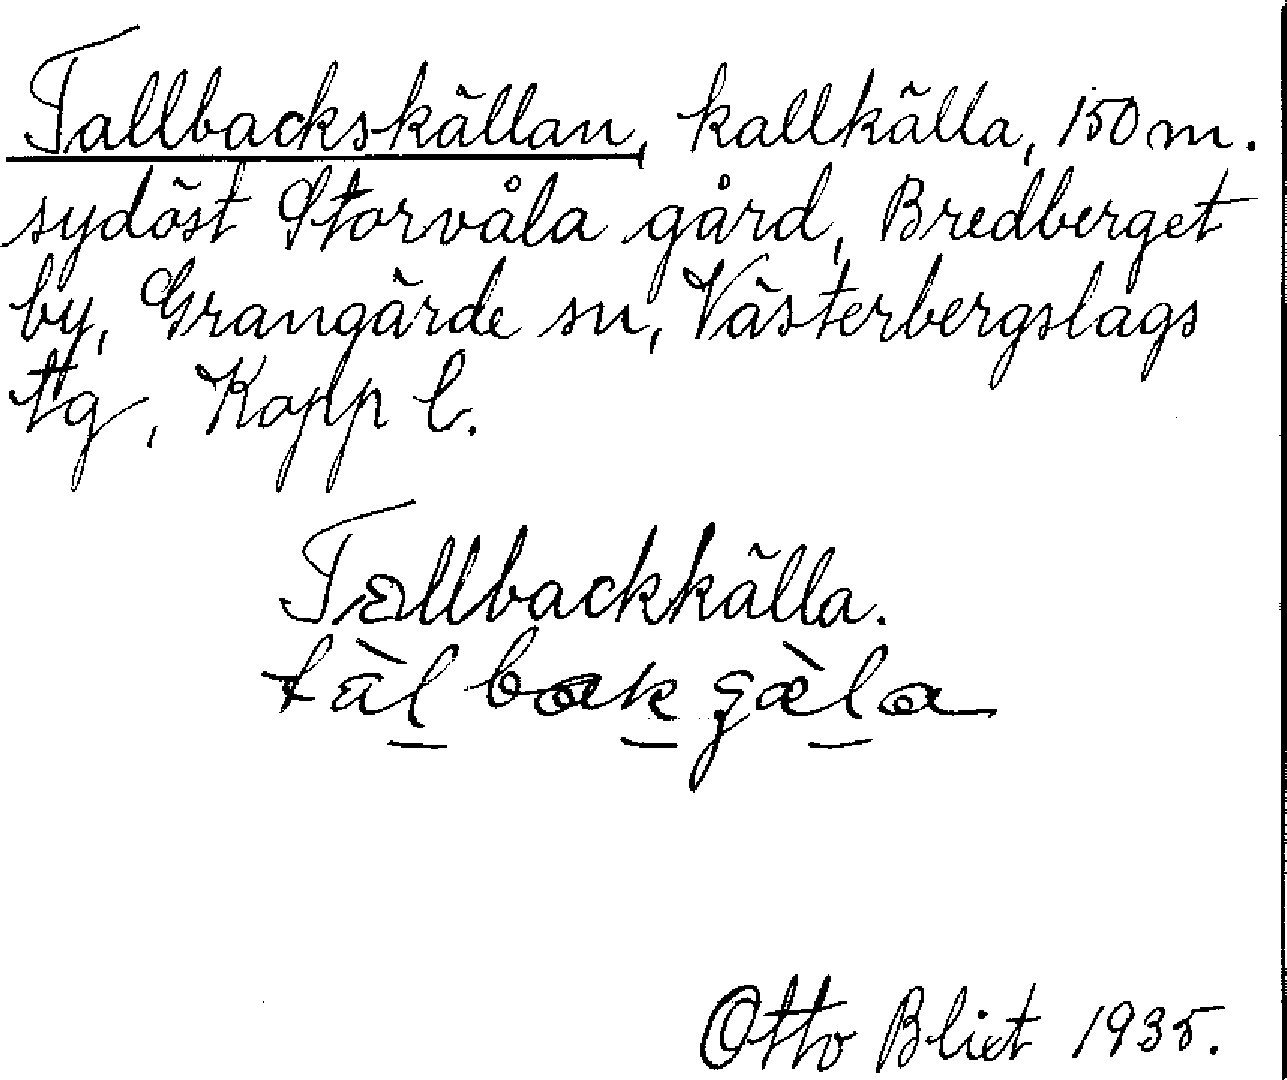 Tallbackskällan, kallkälla, 150 m.
sydöst Storvåla gård, Bredberget
by, Grangärde sn, Västerbergslags
tg, Kopp l.
Tallbackkälla.
Otto Blixt 1935.